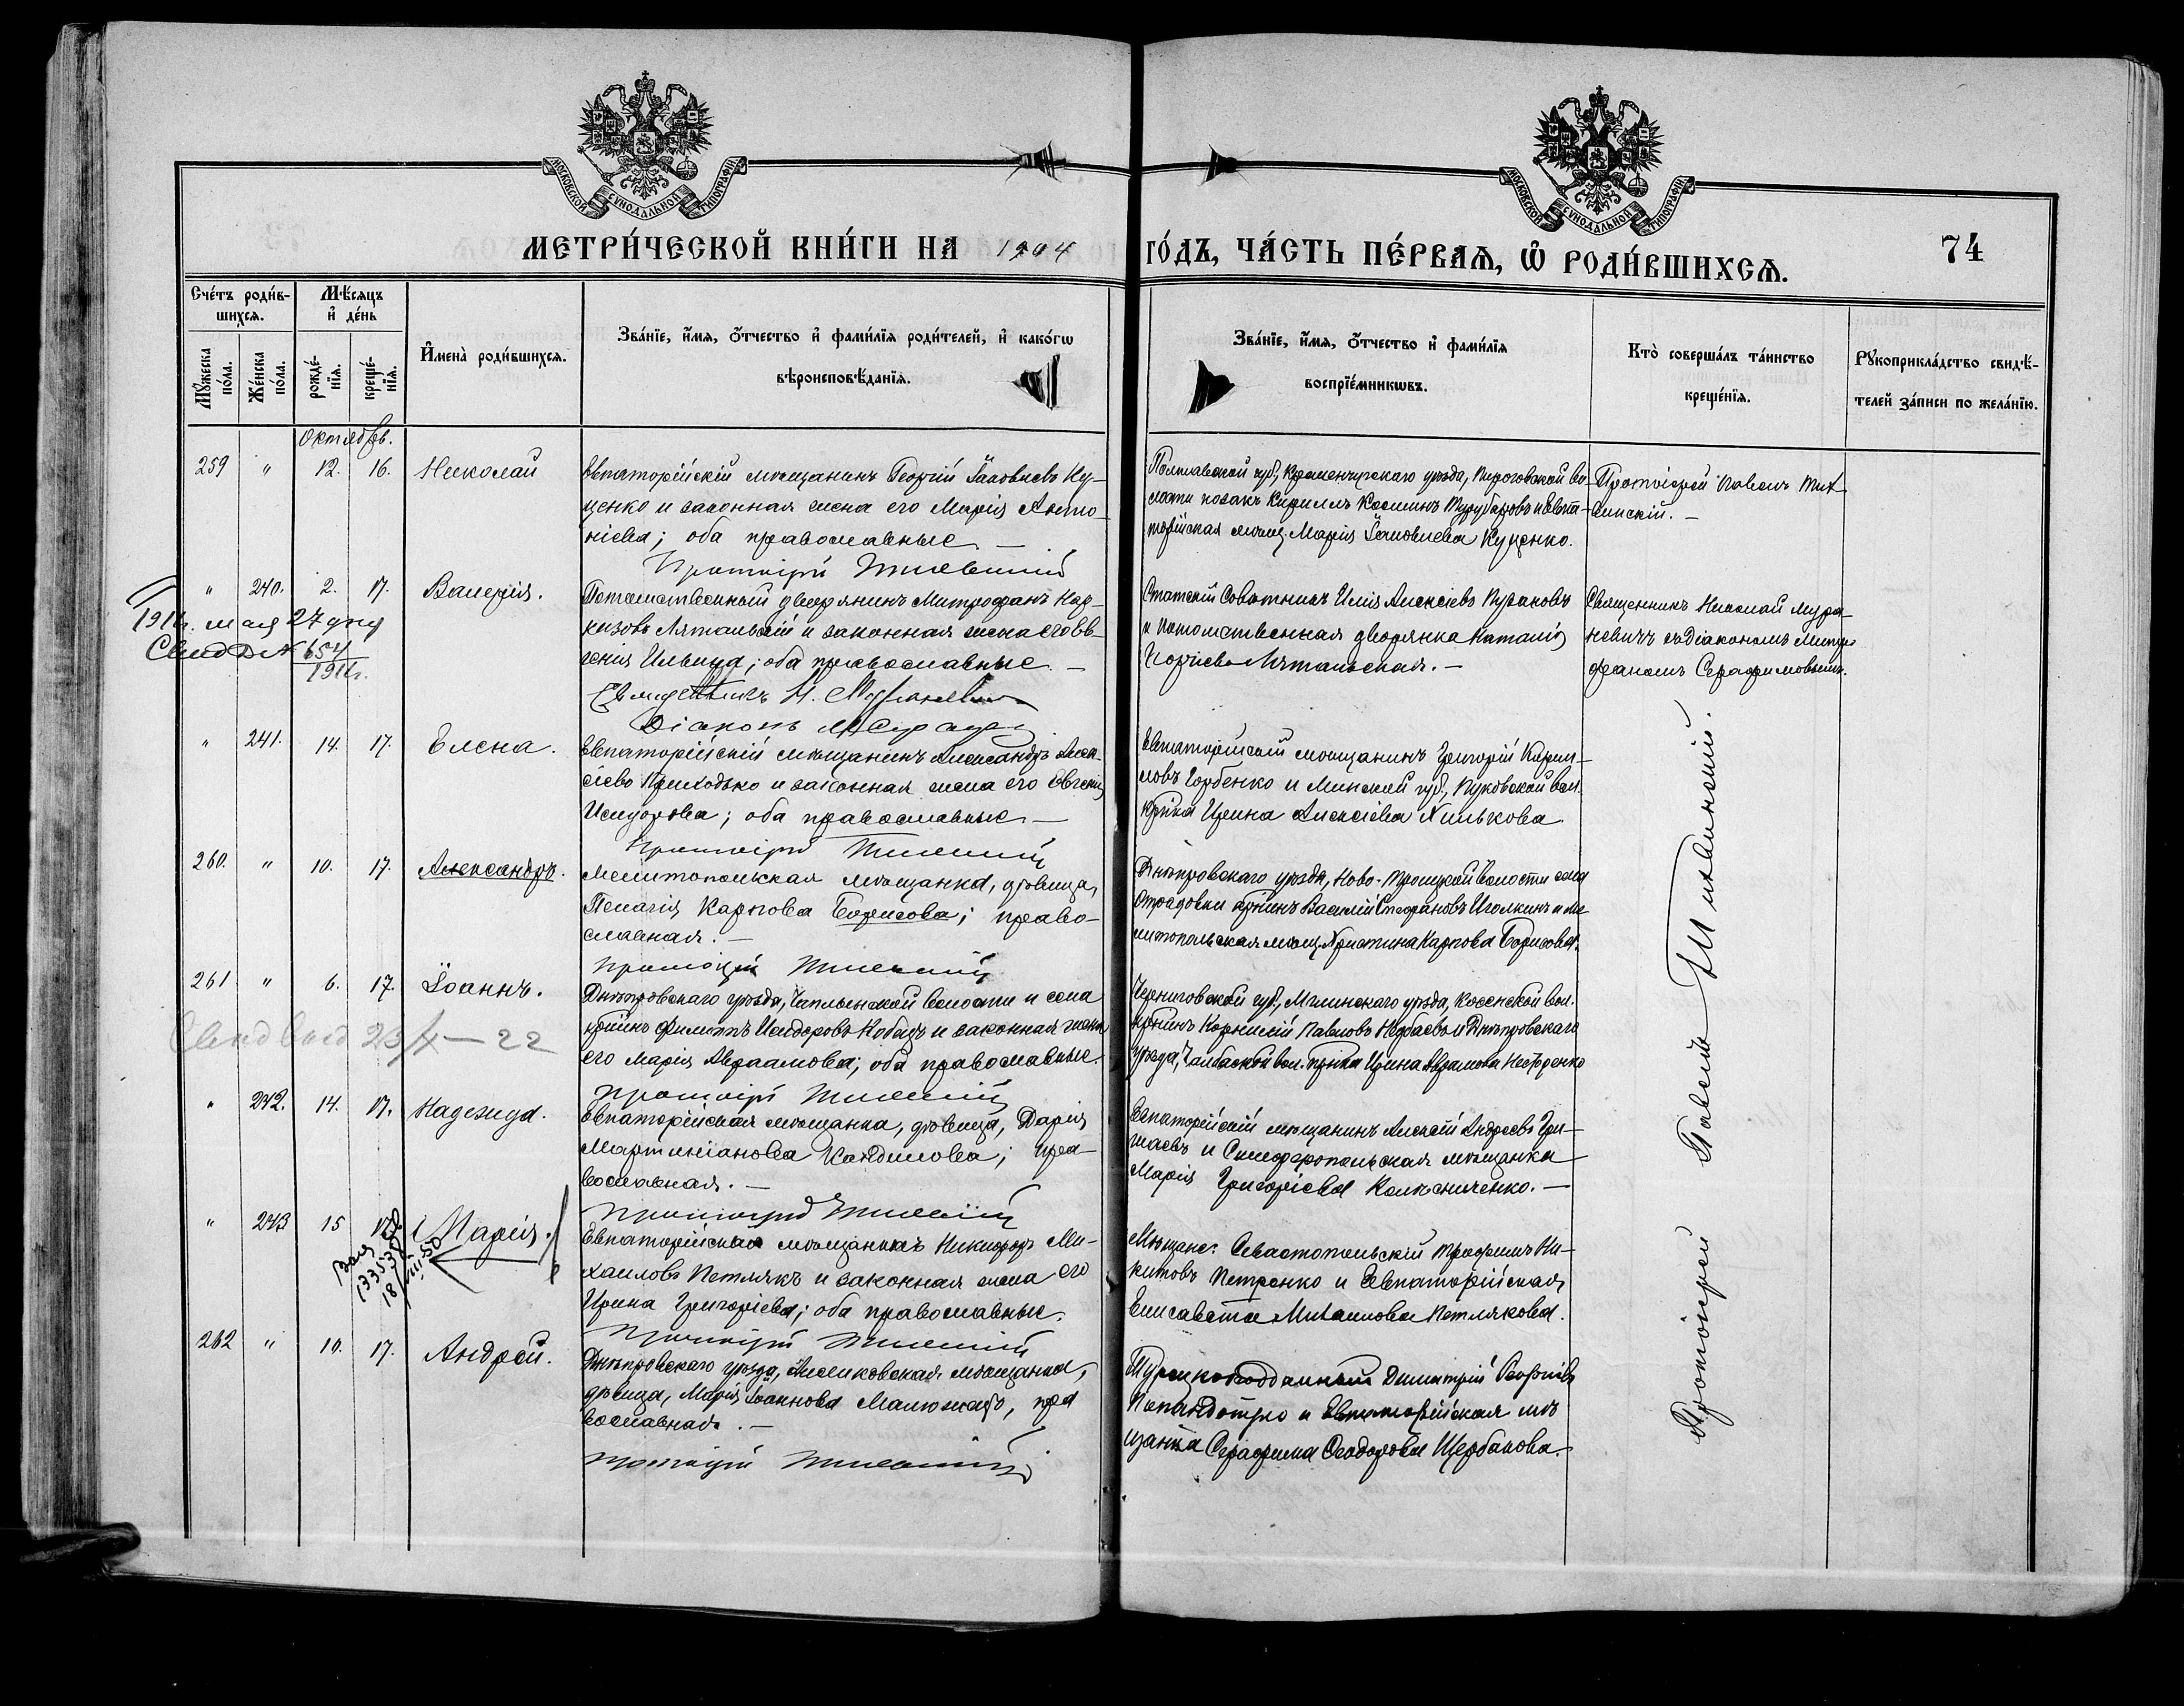 МОСКОВСКОЙ СѴНОДАЛЬНОЙ ТИПОГРАФІИ
МОСКОВСКОЙ СѴНОДАЛЬНОЙ ТИПОГРАФІИ
МЕТРИ́ЧЕСКОЙ КНИ́ГИ НА 1904 ГО́ДЪ, ЧА́СТЬ ПЕ́РВАѦ, Ѡ҆ РОДИ́ВШИХСѦ.
74
Сче́тъ роди́в-
шихсѧ.
Мѣ́сѧцъ
и҆ де́нь
Мꙋ́жеска
по́ла.
Же́нска
по́ла.
рожде́-
нїѧ.
креще́-
нїѧ.
И҆мена̀ роди́вшихсѧ.
Зва́нїе, и҆́мѧ, ѻ҆́тчество и҆ фами́лїѧ роди́телей, и҆ како́гѡ
вѣроисповѣ́данїѧ.
Зва́нїе, и҆́мѧ, ѻ҆́тчество и҆ фами́лїѧ
воспрїе́мникѡвъ.
Кто̀ соверша́лъ та́инство
креще́нїѧ.
Рꙋкоприкла́дство свидѣ́-
телей за́писи по жела́нїю.
Октябрь.
259 " 12. 16. Николай
Евпаторійскій мѣщанинъ Георгій Іаковлевъ Ку-
ценко и законная жена его Марія Анто-
ніева; оба православные. —
Протоіерей
Полтавской губ., Кременчугскаго уѣзда, Пироговской во-
лости козакъ Кириллъ Косминъ и Евпа-
торійская мѣщ. Марія Іаковлева Куценко.
Протоіерей Павелъ Тих-
винскій. —
" 240. 2. 17. Валерія.
1914г. мая 27 дня
Свид. № 654
1914г.
Потомственный дворянинъ Митрофанъ Нар-
кизовъ Лятальскій и законная жена его Ев-
генія Ильина; оба православные. —
Священникъ Н. Мураневичъ
Діаконъ
Статскій Совѣтникъ Илія Алексіевъ
и потомственная дворянка Наталія
Лятальская. —
Священникъ Николай Мура-
невичъ съ діакономъ Митро-
фаномъ Серафимовымъ.
" 241. 14. 17. Елена.
Евпаторійскій мѣщанинъ Александръ Алек-
сіевъ Приходько и законная жена его Евгенія
Исидорова; оба православные. —
Протоіерей
Евпаторійскій мѣщанинъ Григорій Кирил-
ловъ Горбенко и Минской губ., Пуковской вол.
кр-нка Ирина Алексіева Хилькова
260. " 10. 17. Александръ.
Мелитопольская мѣщанка, дѣвица,
Пелагія Карпова Борисова; право-
славная. —
Протоіерей
Днѣпровскаго уѣзда, Ново-Троицкой волости села
Строгановки кр-нинъ Василій Стефановъ Иголкинъ и Ме-
литопольская мѣщ. Христина Карпова Борисова.
261 " 6. 17. Іоаннъ.
Свид выд 23/X — 22
Днѣпровскаго уѣзда, Чаплынской волости и села
кр-нинъ Филиппъ Исидоровъ Кобецъ и законная жена
его Марія Авраамова; оба православные.
Протоіерей
Черниговской губ., Мглинскаго уѣзда, Косенской вол.
кр-нинъ Корнилій Павловъ и Днѣпровскаго
уѣзда, Чалбаской вол. кр-нка Ирина Авраамова
" 242. 14. 17. Надежда.
Евпаторійская мѣщанка, дѣвица, Дарія
Мартиніанова Кандилова; пра-
вославная. —
Протоіерей
Евпаторійскій мѣщанинъ Алексій Андреевъ Гри-
и Симферопольская мѣщанка
Марія Григоріева Колѣсниченко. —
" 243 15 17 Марія.
133538
18/III 50
Евпаторійскій мѣщанинъ Никифоръ Ми-
хаиловъ Петлякъ и законная жена его
Ирина Григоріева; оба православные.
Протоіерей
Мѣщане: Севастопольскій Трофимъ Ни-
китовъ Петренко и Евпаторійская
Елисавета Михаилова Петлякова.
262 " 10. 17. Андрей.
Днѣпровскаго уѣзда, Алешковская мѣщанка,
дѣвица, Марія Іоаннова, пра
вославная. —
Протоіерей
Турецкоподданный Димитрій Георгіевъ
Папандопуло и Евпаторійская мѣ
щанка Серафима Ѳеодорова Щербакова. —
Протоіерей Павелъ Тихвинскій.